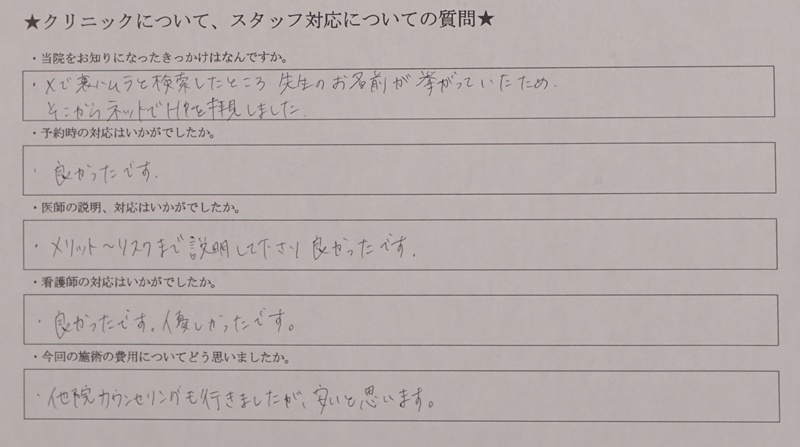 ★クリニックについて、スタッフ対応についての質問★
・当院をお知りになったきっかけはなんですか。
・Xで裏ハムラと検索したところ 先生のお名前が挙がっていたため.
そこからネットでHPを拝見しました.
・予約時の対応はいかがでしたか。
・良かったです.
・医師の説明、対応はいかがでしたか。
・メリット〜リスクまで説明して下さり 良かったです.
・看護師の対応はいかがでしたか。
・良かったです。優しかったです。
・今回の施術の費用についてどう思いましたか。
・他院カウンセリングも行きましたが、安いと思います。